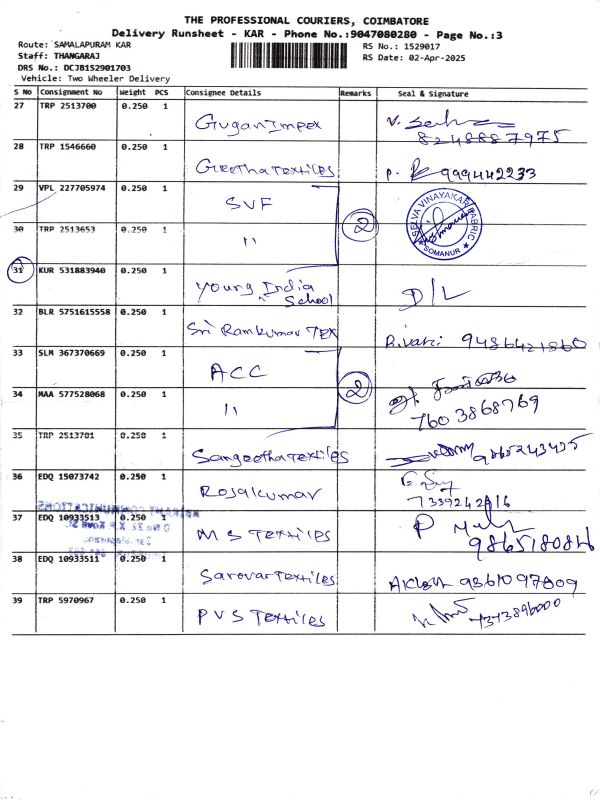 THE PROFESSIONAL COURIERS, COIMBATORE
Delivery Runsheet - KAR - Phone No.:9047080280 - Page No.:3
Route: SAMALAPURAM KAR
RS No.: 1529017
Staff: THANGARAJ
RS Date: 02-Apr-2025
DRS No.: DCJB152901703
Vehicle: Two Wheeler Delivery
S No Consignment No Weight PCS Consignee Details Remarks Seal & Signature
27 TRP 2513700 0.250 1 Gugan Impex
8248887975
28 TRP 1546660 0.250 1 Geetha Textiles 999442233
29 VPL 227705974 0.250 1 SVF 2 SELVA VINAYAKAR FABRIC
SOMANUR
30 TRP 2513653 0.250 1 "
31 KUR 531883940 0.250 1 Young India School D/L
32 BLR 5751615558 0.250 1 Sri Ramkumar TEX 9486421860
33 SLM 367370669 0.250 1 ACC 2
34 MAA 577528068 0.250 1 " 7603868769
35 TRP 2513701 0.250 1 Sangeetha Textiles 9865243435
36 EDQ 15073742 0.250 1 Rosalkumar 7339242816
37 EDQ 10933513 0.250 1 M S Textiles 9865180816
38 EDQ 10933511 0.250 1 Sarovar Textiles 9361097809
39 TRP 5970967 0.250 1 PVS Textiles 7373896000